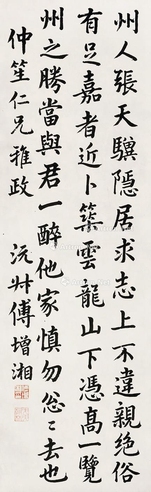 州人張天驥隱居求志上不違親絶俗
有足嘉者近卜築雲龍山下憑高一覽
州之勝當與君一醉他家慎勿怱〻去也
仲笙仁兄雅政
沅叔傅增湘